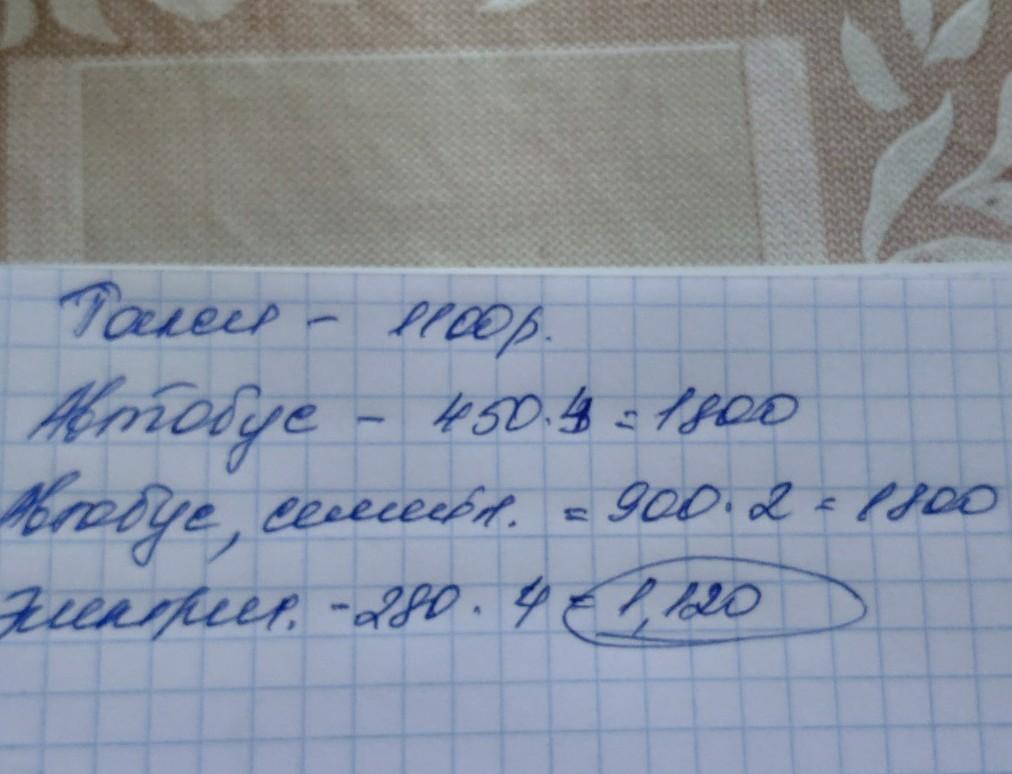 Такси - 1100р.
Автобус - 450·4 = 1800
Автобус, семейн. = 900·2 = 1800
Электрич. - 280·4 = 1,120